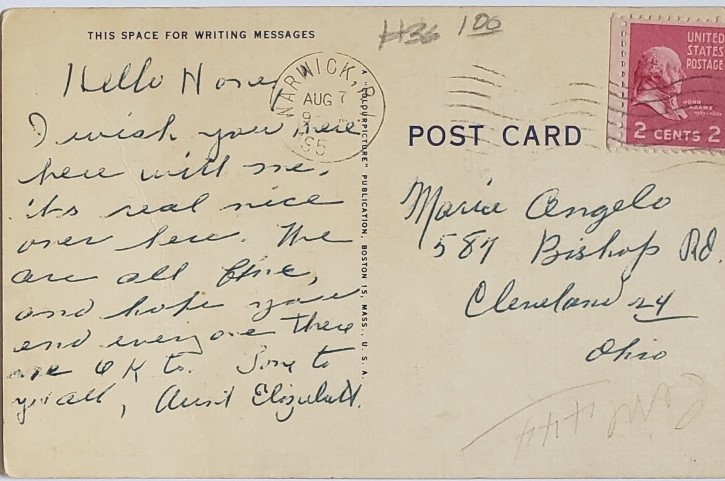 THIS SPACE FOR WRITING MESSAGES
H36 1 00
Hello Honey
I wish you were
here with me,
its real nice
over here. We
are all fine,
and hope you
and everyone there
are OK to. Love to
you all, Aunt Elizabeth.
WARWICK,
AUG 7
9
195
"COLOURPICTURE" PUBLICATION, BOSTON 15, MASS., U. S. A.
UNITED
STATES
POSTAGE
JOHN
ADAMS
2 CENTS 2
POST CARD
Maria Angelo
587 Bishop Rd.
Cleveland 24
Ohio